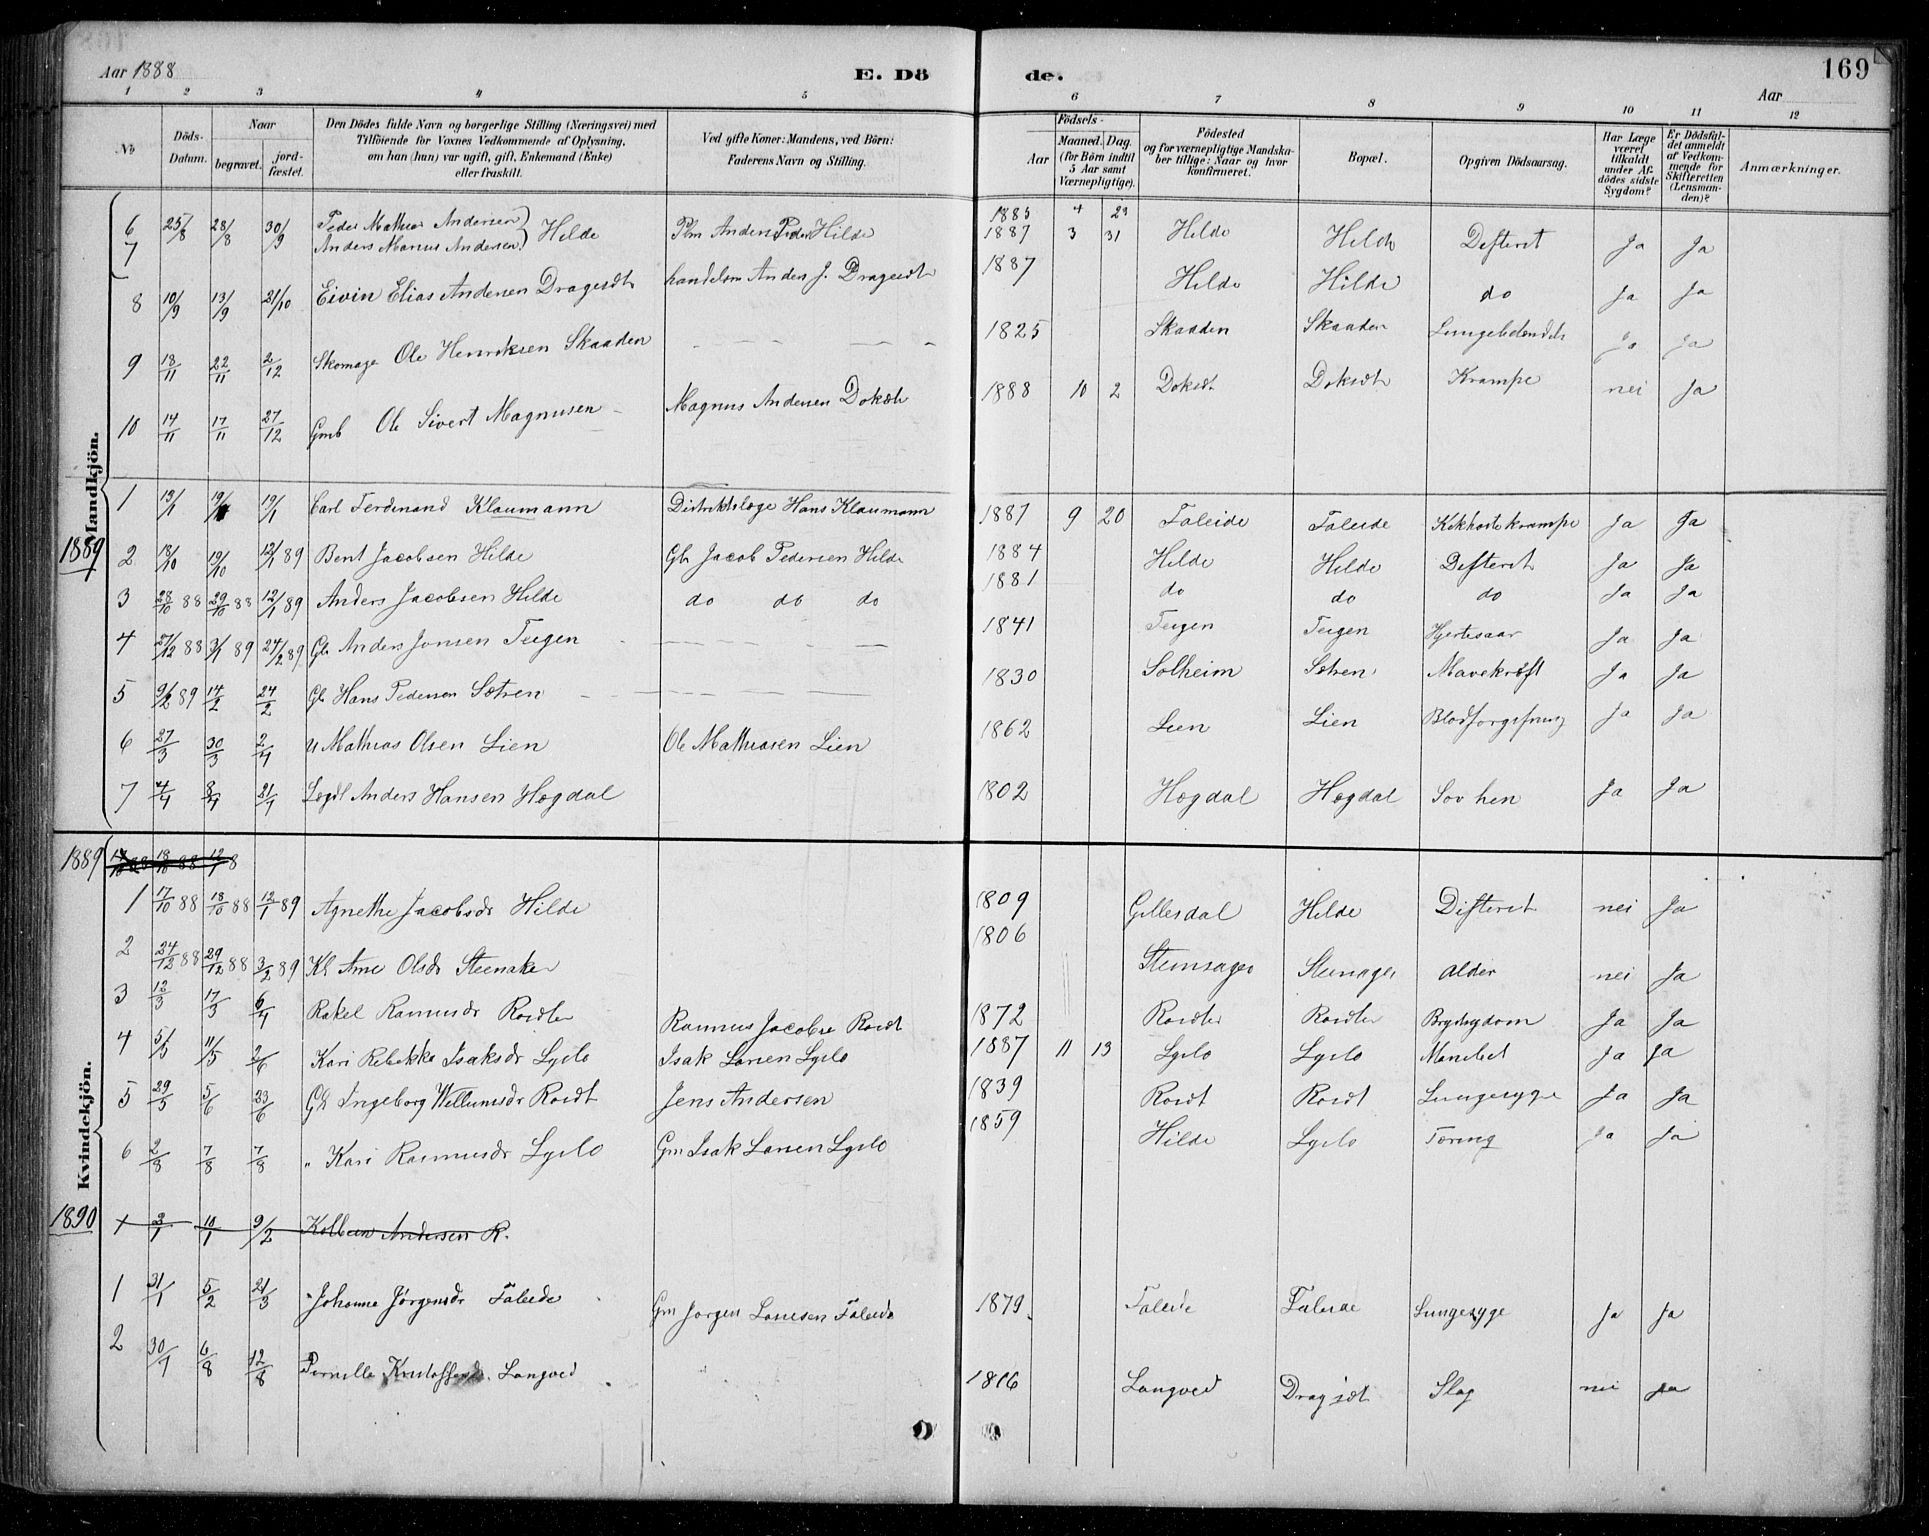 Aar 1888
E. Dö de.
169
Aar
1 2 3 4 5 6 7 8 9 10 11 12
No
Döds-Datum.
Naar begravet. jord-fæstet.
Den Dödes fulde Navn og borgerlige Stilling (Næringsvei) med Tilföiende for Voxnes Vedkommende af Oplysning, om han (hun) var ugift, gift, Enkemand (Enke) eller fraskilt.
Ved gifte Koner: Mandens, ved Börn: Faderens Navn og Stilling.
Födsels-
Aar
Maaned. Dag. (for Börn indtil 5 Aar samt Værnepligtige).
Födested og for værnepligtige Mandska-ber tillige: Naar og hvor konfirmeret.
Bopæl.
Opgiven Dödsaarsag.
Har Læge været tilkaldt under Af-dödes sidste Sygdom?
Er Dödsfal-det anmeldt af Vedkom-mende for Skifteretten (Lensman-den)?
Anmærkninger.
Mandkjön.
6 25/8 28/8 30/9 Peder Mathias Andersen Hilde Anders Peder Hilde 1885 4 29 Hilde Hilde Difterit Ja Ja
7 Anders Marius Andersen 1887 3 31
8 10/9 13/9 21/10 Eivin Elias Andersen Dragesdt handelsm Anders J. Dragesdt 1887 Hilde Hilde do Ja Ja
9 18/11 22/11 2/12 Skomager Ole Henriksen Skaaden 1825 Skaaden Skaaden Lungebetændels Ja Ja
10 14/11 17/11 27/12 Gmb Ole Sivert Magnusen Magnus Andersen 1888 10 2 Doksdt Doksdt Krampe nei Ja
1889
1 13/1 19/1 19/1 Carl Ferdinand Klaumann Distriktslæge Hans Klaumann 1887 9 20 Faleide Faleide Kikhoste krampe Ja Ja
2 18/10 19/10 12/1 89 Bent Jacobsen Hilde Gb Jacob Pedersen Hilde 1884 Hilde Hilde Difterit Ja Ja
3 28/10 88 29/10 88 12/1 89 Anders Jacobsen Hilde do do do 1881 do do do Ja Ja
4 27/12 88 3/1 89 24/2 89 Gb Anders Jonsen Teigen 1841 Teigen Teigen Ja Ja
5 9/2 89 14/2 24/2 Gb Hans Pedersen Sætren 1830 Solheim Sætren Mavekræft Ja Ja
6 27/3 30/3 2/4 u Mathias Olsen Lien Ole Mathiasen Lien 1862 Lien Lien Blodforgiftning Ja Ja
7 4/4 8/4 21/4 Lægdl Anders Hansen Hogdal 1802 Hogdal Hogdal Sov hen Ja Ja
Kvindekjön.
1889
1 17/10 88 18/10 88 12/1 89 Agnethe Jacobsdr Hilde 1809 Gillesdal Hilde Difterit nei Ja
2 24/12 88 29/12 88 3/2 89 Kl Ane Olsdr 1806 Alder nei Ja
3 12/3 17/3 6/4 Rakel Rasmusdr Rasmus Jacobs 1872 Brystsygdom Ja Ja
4 5/5 11/5 2/6 Kari Rebekke Isaksdr Lyslo Isak Larsen Lyslo 1887 11 13 Lyslo Lyslo Ja Ja
5 29/5 5/6 23/6 Gk Ingeborg Willumsdr Roset Jens Andersen 1839 Lungesyge Ja Ja
6 2/8 7/8 7/8 " Kari Rasmusdr Lyslo Gm Isak Larsen Lyslo 1859 Hilde Lyslo Tæring Ja Ja
1890
1 3/1 10/1 9/2 Kolbein Andersen R.
1 31/1 5/2 21/3 " Johanne Jørgensdr Faleide Gm Jørgen Larssen Faleide 1879 Faleide Faleide Lungesyge Ja Ja
2 30/7 6/8 12/8 Pernille Langved 1816 Langved Slag nei Ja